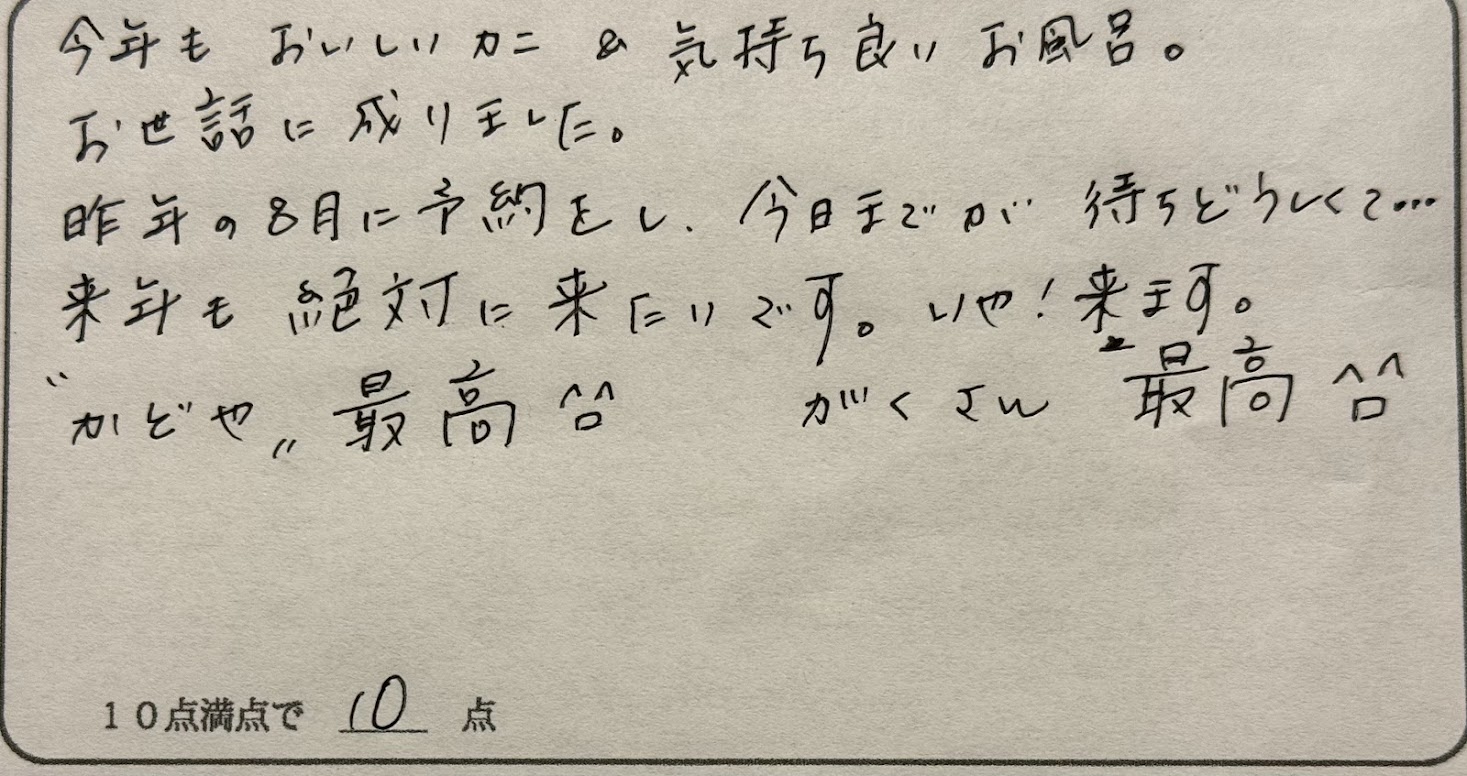 今年も おいしいカニ & 気持ち良い お風呂。
お世話に 成りました。
昨年の8月に予約をし、今日までが 待ちどうしくて…
来年も 絶対に 来たいです。いや!来ます。
〝かどや〟最高 ^^ がくさん 最高 ^^
10点満点で 10 点